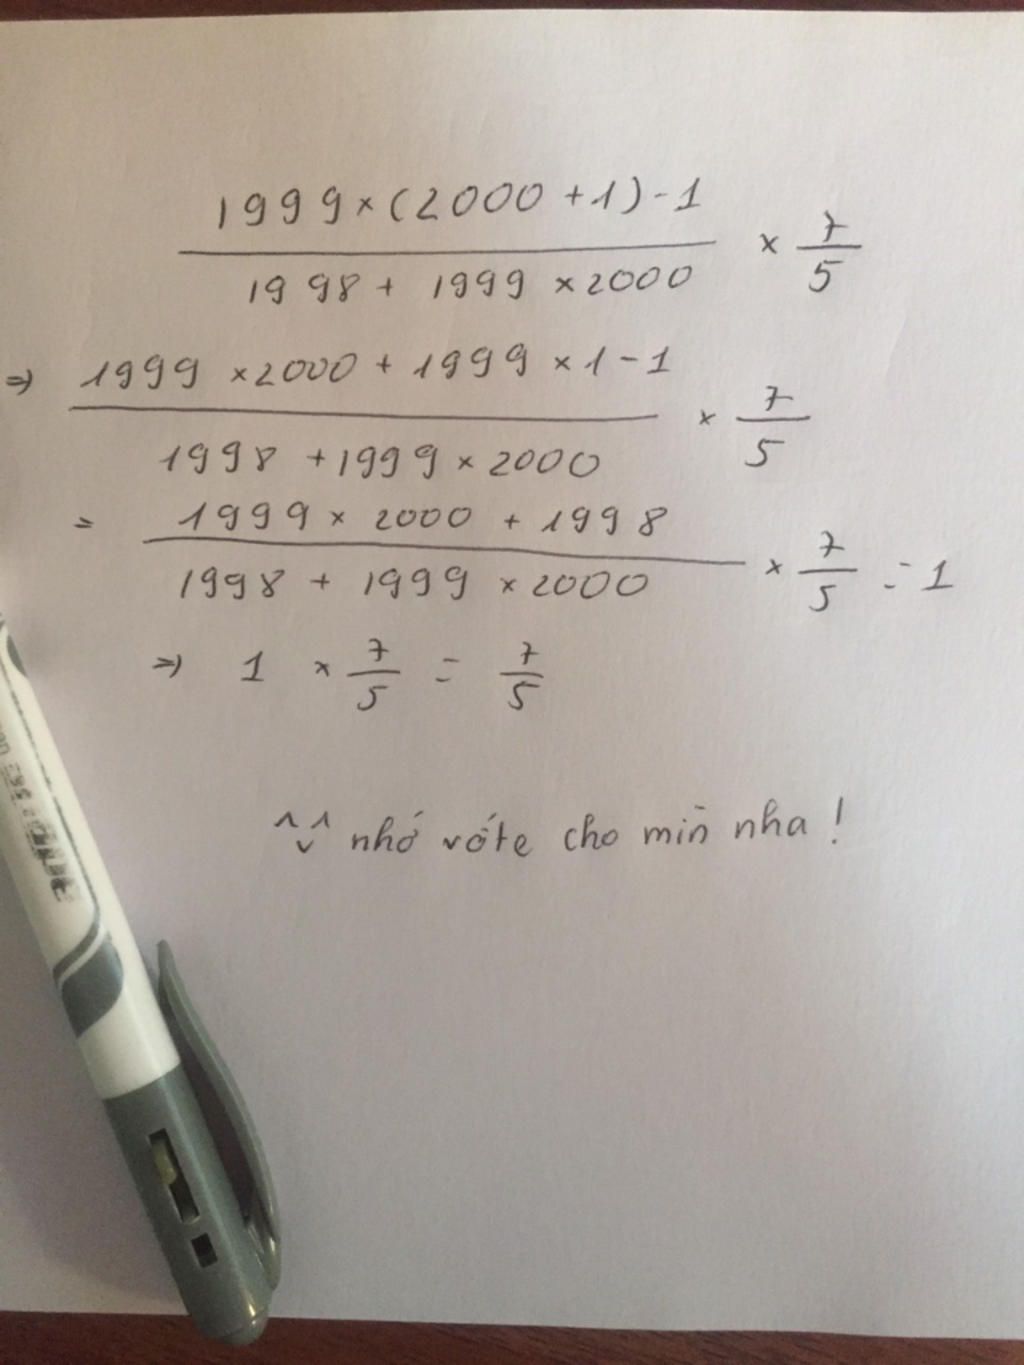 1999 × (2000 + 1) - 1
× 7/5
1998 + 1999 × 2000
⇒ 1999 × 2000 + 1999 × 1 - 1
× 7/5
1998 + 1999 × 2000
= 1999 × 2000 + 1998
× 7/5 = 1
1998 + 1999 × 2000
⇒ 1 × 7/5 = 7/5
^v^ nhớ vóte cho mìn nha !